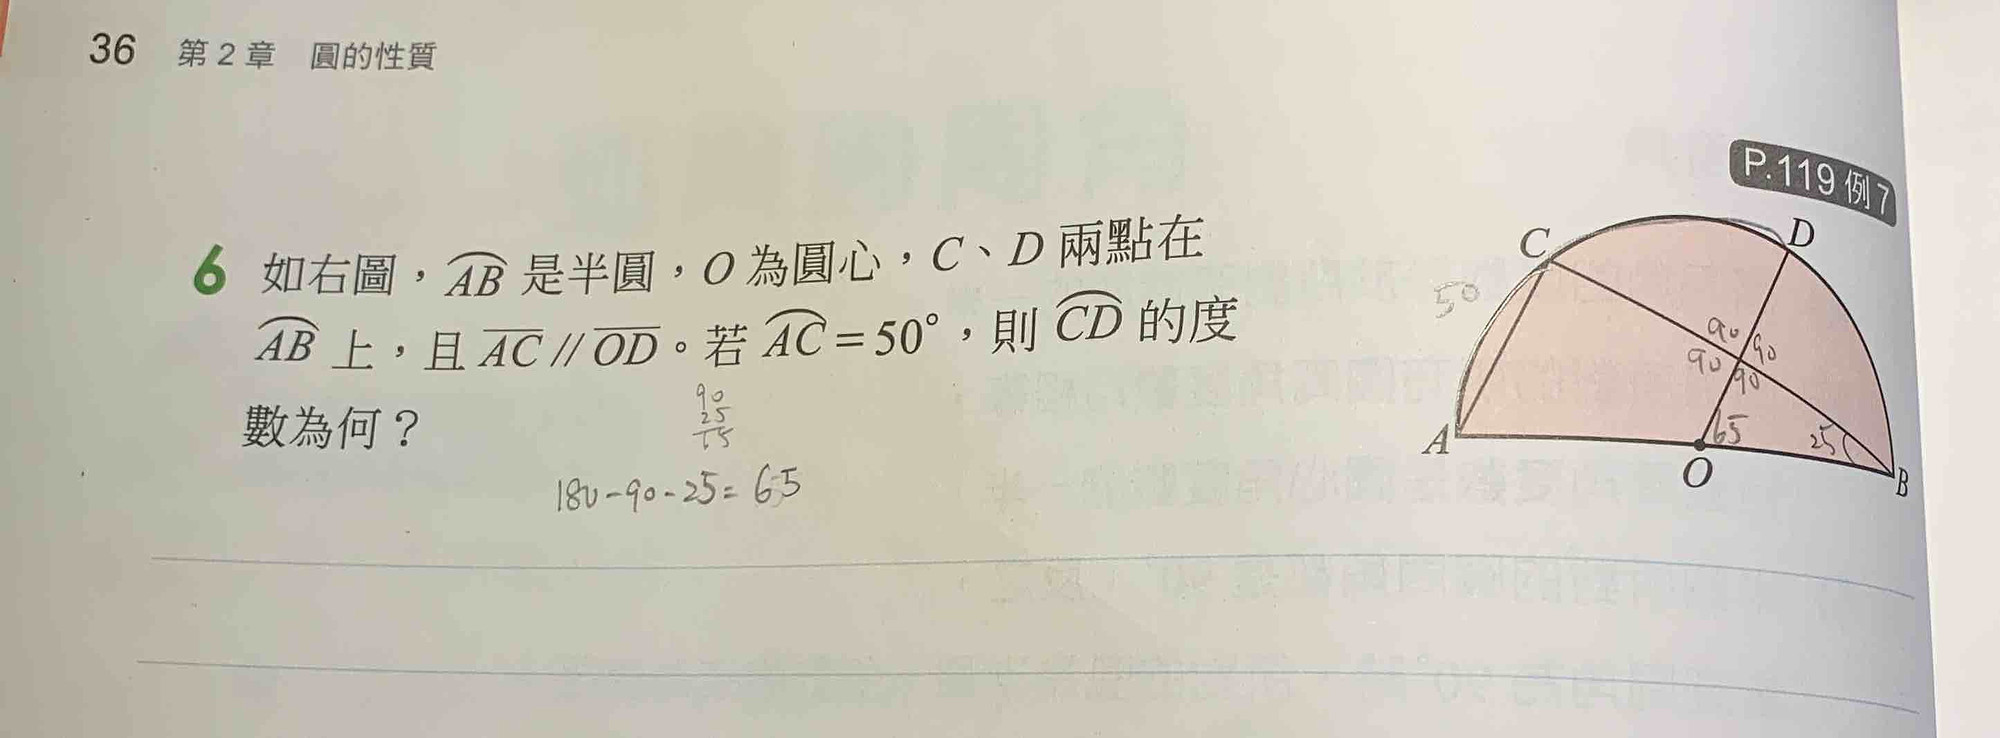 36 第2章 圓的性質
P.119 例7
6 如右圖，AB 是半圓，O 為圓心，C、D 兩點在
AB 上，且 AC // OD。若 AC = 50°，則 CD 的度
數為何？
90
25
180-90-25=65
C
D
50
90
90
90
90
65
25
A
O
B